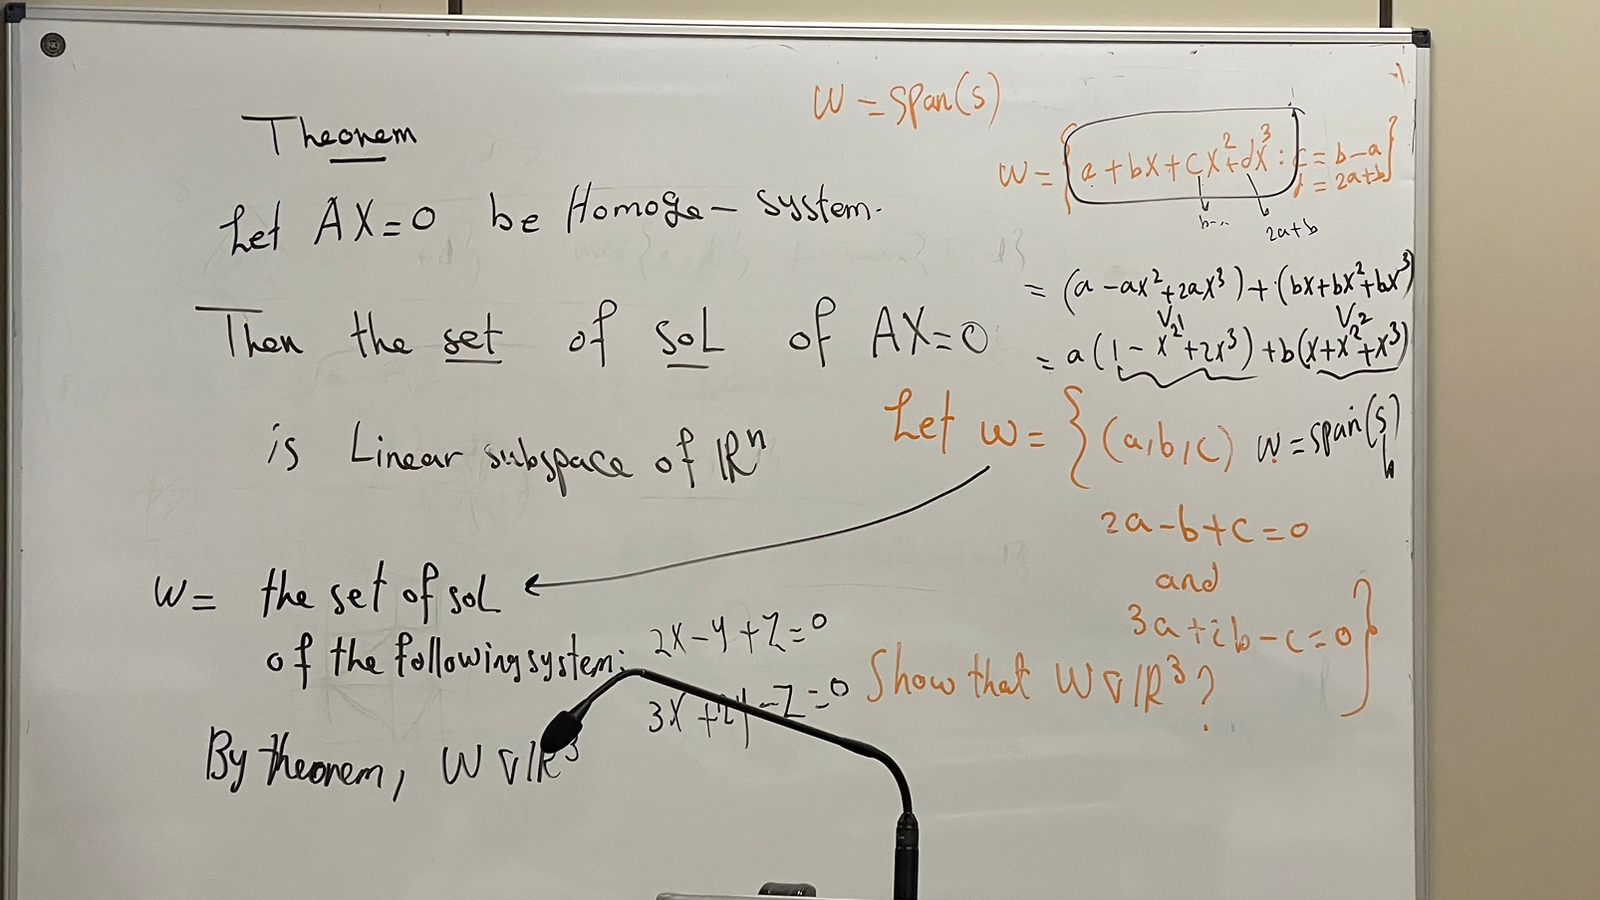 Theorem
Let AX=0 be Homoge- system.
Then the set of soL of AX=0
is Linear subspace of ℝⁿ
W = the set of soL
of the following system:
2x-y+z=0
3x+2y-z=0
By theorem, W ∇ ℝ³
W = span(s)
W = { a+bx+cx²+dx³ : c = b-a
d = 2a+b }
b-..
2a+b
= (a-ax²+2ax³)+(bx+bx²+bx³)
V₁ V₂
= a(1-x²+2x³)+b(x+x²+x³)
Let W = { (a,b,c) W = span(s)
2a-b+c=0
and
3a+2b-c=0 }
Show that W ∇ ℝ³ ?